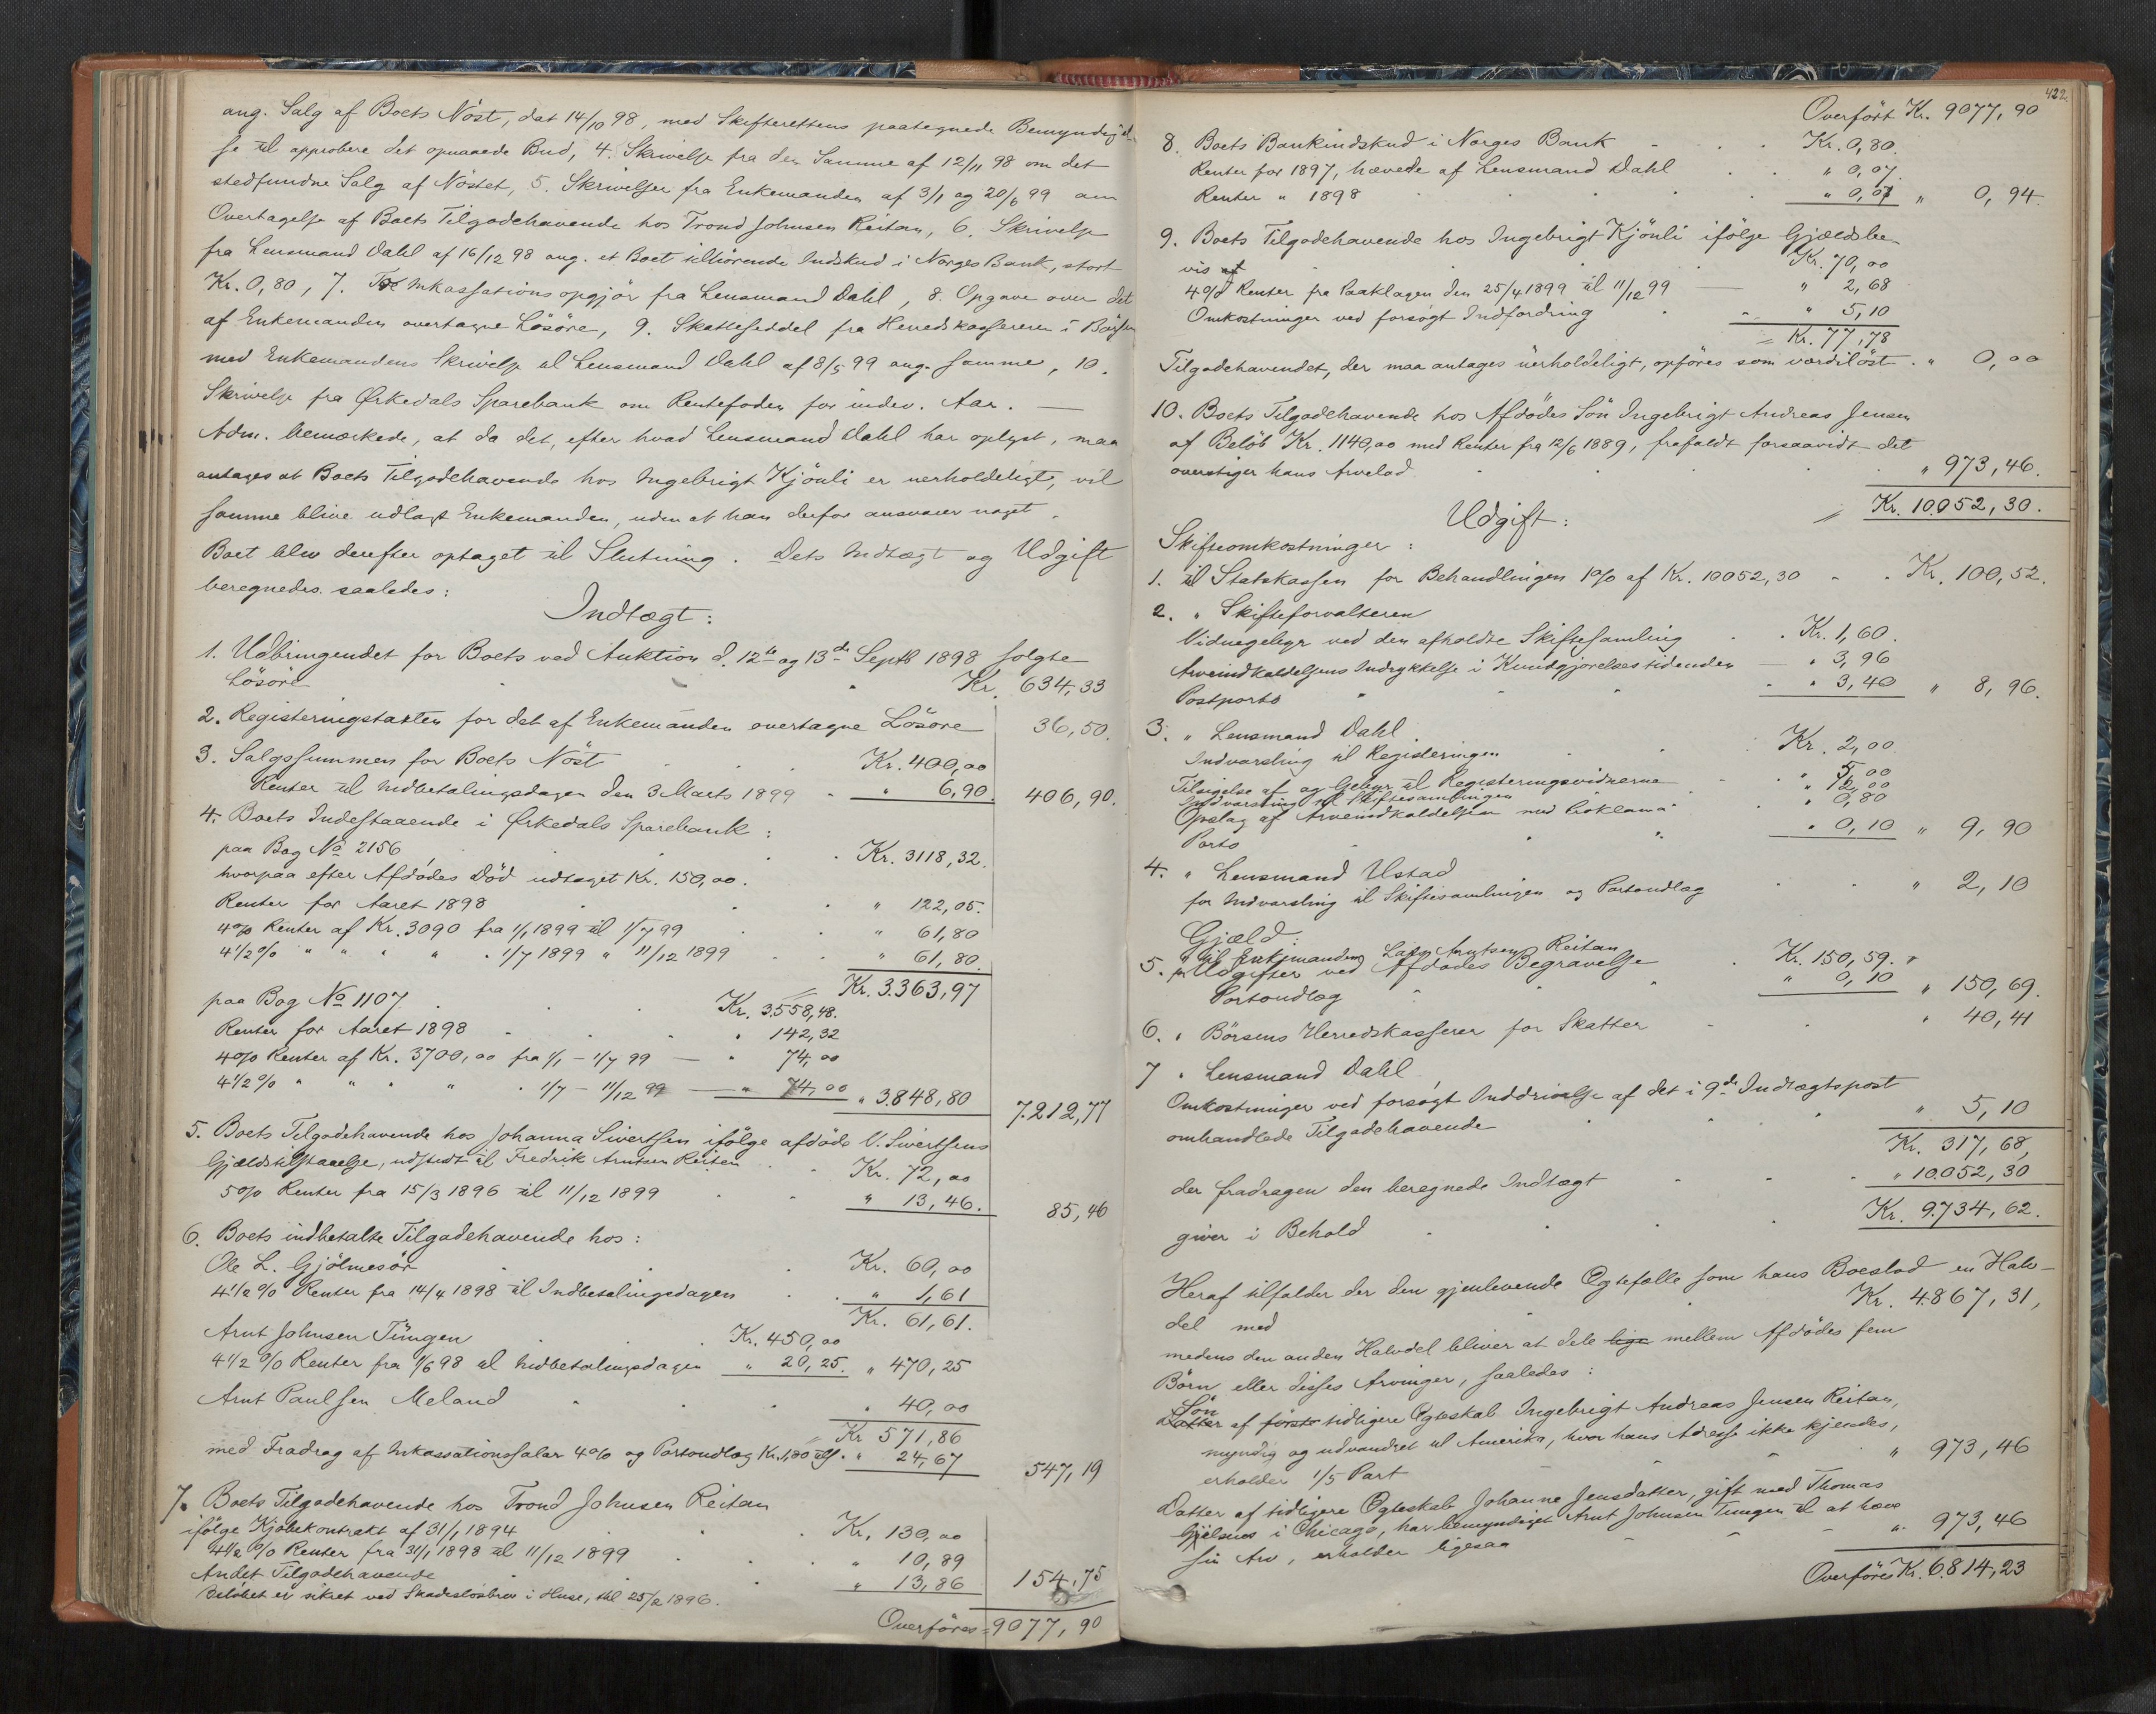 ang. Salg af Boets Nöst, dat 14/10 98, med Skifterettens paategnede Bemyndigel-
se til approbere det opnaaede Bud, 4. Skrivelse fra den Samme af 12/11 98 om det
stedfundne Salg af Nöstet, 5. Skrivelser fra Enkemanden af 3/1 og 20/6 99 om
Overtagelse af Boets Tilgodehavende hos Trond Johnsen Reitan, 6. Skrivelse
fra Lensmand Dahl af 16/12 98 ang. et Boet tilhörende Indskud i Norges Bank, stort
Kr. 0,80, 7. Inkassationsopgjör fra Lensmand Dahl, 8. Opgave over det
af Enkemanden overtagne Lösöre, 9. Skatteseddel fra Herredskassereren i Börsen
med Enkemandens Skrivelse til Lensmand Dahl af 8/5 99 ang. samme, 10.
Skrivelse fra Ørkedals Sparebank om Rentefoden for indev. Aar. —
Adm. bemærkede, at da det, efter hvad Lensmand Dahl har oplyst, maa
antages at Boets Tilgodehavende hos Ingebrigt Kjönli er uerholdeligt, vil
samme blive udlagt Enkemanden, uden at han derfor ansvarer noget.
Boet blev derefter optaget til Slutning. Dets Indtægt og Udgift
beregnedes saaledes:
Indtægt:
1. Udbringendet for Boets ved Auktion d. 12te og 13de Septb 1898 solgte
Lösöre Kr. 634,33
2. Registeringstaxten for det af Enkemanden overtagne Lösöre 36,50.
3. Salgssummen for Boets Nöst Kr. 400,00
Renter til Indbetalingsdagen den 3 Marts 1899 " 6,90. 406,90.
4. Boets Indestaaende i Ørkedals Sparebank:
paa Bog No 2156 Kr. 3118,32.
hvorpaa efter Afdödes Död udtaget Kr. 150,00.
Renter for Aaret 1898 " 122,05.
4% Renter af Kr. 3090 fra 1/1 1899 til 1/7 99 " 61,80
4 1/2 % " " " " " 1/7 1899 " 11/12 1899 " 61,80.
Kr. 3.363,97
paa Bog No 1107 Kr. 3.558,48.
Renter for Aaret 1898 " 142,32
4% Renter af Kr. 3700,00 fra 1/1 - 1/7 99 — " 74,00
4 1/2 % " " " " " 1/7 - 11/12 99 — " 74,00 " 3.848,80 7.212,77
5. Boets Tilgodehavende hos Johanna Sivertsen ifölge afdöde V. Sivertsens
Gjældstilstaaelse, udstedt til Fredrik Arntsen Reitan Kr. 72,00
5% Renter fra 15/3 1896 til 11/12 1899 " 13,46. 85,46
6. Boets indbetalte Tilgodehavende hos:
Ole L. Gjölmesör Kr. 60,00
4 1/2 % Renter fra 14/4 1898 til Indbetalingsdagen " 1,61
Kr. 61,61.
Arnt Johnsen Tüngen Kr. 450,00
4 1/2 % Renter fra 1/6 98 til Indbetalingsdagen " 20,25. " 470,25
Arnt Paulsen Meland " 40,00
Kr 571,86
med Fradrag af Inkassationssalær 4% og Portoudlæg Kr. 1,80 tils. " 24,67 547,19
7. Boets Tilgodehavende hos Trond Johnsen Reitan
ifölge Kjöbekontrakt af 31/1 1894 Kr. 130,00
4 1/2 % Renter fra 31/1 1898 til 11/12 1899 " 10,89
Andet Tilgodehavende " 13,86 154,75
Belöbet er sikret ved Skadeslösbrev i Huse, thl 25/2 1896.
Overföres 9077,90
422.
Overfört Kr. 9077,90
8. Boets Bankindskud i Norges Bank Kr. 0,80.
Renter for 1897, hævede af Lensmand Dahl " 0,07.
Renter " 1898 " 0,07 " 0,94.
9. Boets Tilgodehavende hos Ingebrigt Kjönli ifölge Gjældsbe-
vis af Kr. 70,00
4% Renter fra Paaklagen den 25/4 1899 til 11/12 99 — " 2,68
Omkostninger ved forsögt Indfordring " 5,10
Kr. 77,78
Tilgodehavendet, der maa antages uerholdeligt, opföres som værdilöst. " 0,00
10. Boets Tilgodehavende hos Afdödes Sön Ingebrigt Andreas Jensen
af Belöb Kr. 1140,00 med Renter fra 12/6 1889, frafaldt forsaavidt det
overstiger hans Arvelod " 973,46.
Kr. 10.052,30.
Udgift:
Skifteomkostninger:
1. til Statskassen for Behandlingen 1% af Kr. 10052,30 Kr. 100,52.
2. " Skifteforvalteren
Vidnegebyr ved den afholdte Skiftesamling Kr. 1,60.
Arveindkaldelsens Indrykkelse i Kundgjörelsestidenden — " 3,96
Postporto " 3,40 " 8,96.
3. " Lensmand Dahl
Indvarsling til Registeringen Kr. 2,00
Tilsigelse af og Gebyr til Registeringsvidnerne " 5,00
Indvarsling til Skiftesamlingen " 2,00
Opslag af Arveindkaldelsen med Proklama " 0,80
Porto " 0,10 " 9,90
4. " Lensmand Ustad
for Indvarsling til Skiftesamlingen og Portoudlæg " 2,10
Gjæld:
5. til Enkemanden Lars Arntsen Reitan
Udgifter ved Afdödes Begravelse Kr. 150,59.
Portoudlæg " 0,10 " 150,69.
6. " Börsens Herredskasserer for Skatter " 40,41
7 " Lensmand Dahl
Omkostninger ved forsögt Inddrivelse af det i 9de Indtægtspost
omhandlede Tilgodehavende " 5,10
Kr. 317,68,
der fradragen den beregnede Indtægt " 10.052,30
giver i Behold Kr. 9.734,62.
Heraf tilfalder der den gjenlevende Ægtefælle som hans Boeslod en Halv-
del med Kr. 4.867,31,
medens den anden Halvdel bliver at dele lige mellem Afdödes fem
Börn eller disses Arvinger, saaledes:
Sön
Datter af första tidligere Ægteskab Ingebrigt Andreas Jensen Reitan,
myndig og udvandret til Amerika, hvor hans Adresse ikke kjendes,
erholder 1/5 Part " 973,46
Datter af tidligere Ægteskab Johanne Jensdatter, gift med Thomas
Gjelsnes i Chicago, har bemyndiget Arnt Johnsen Tungen til at hæve
sin Arv, erholder ligesaa " 973,46
Overföres Kr. 6.814,23